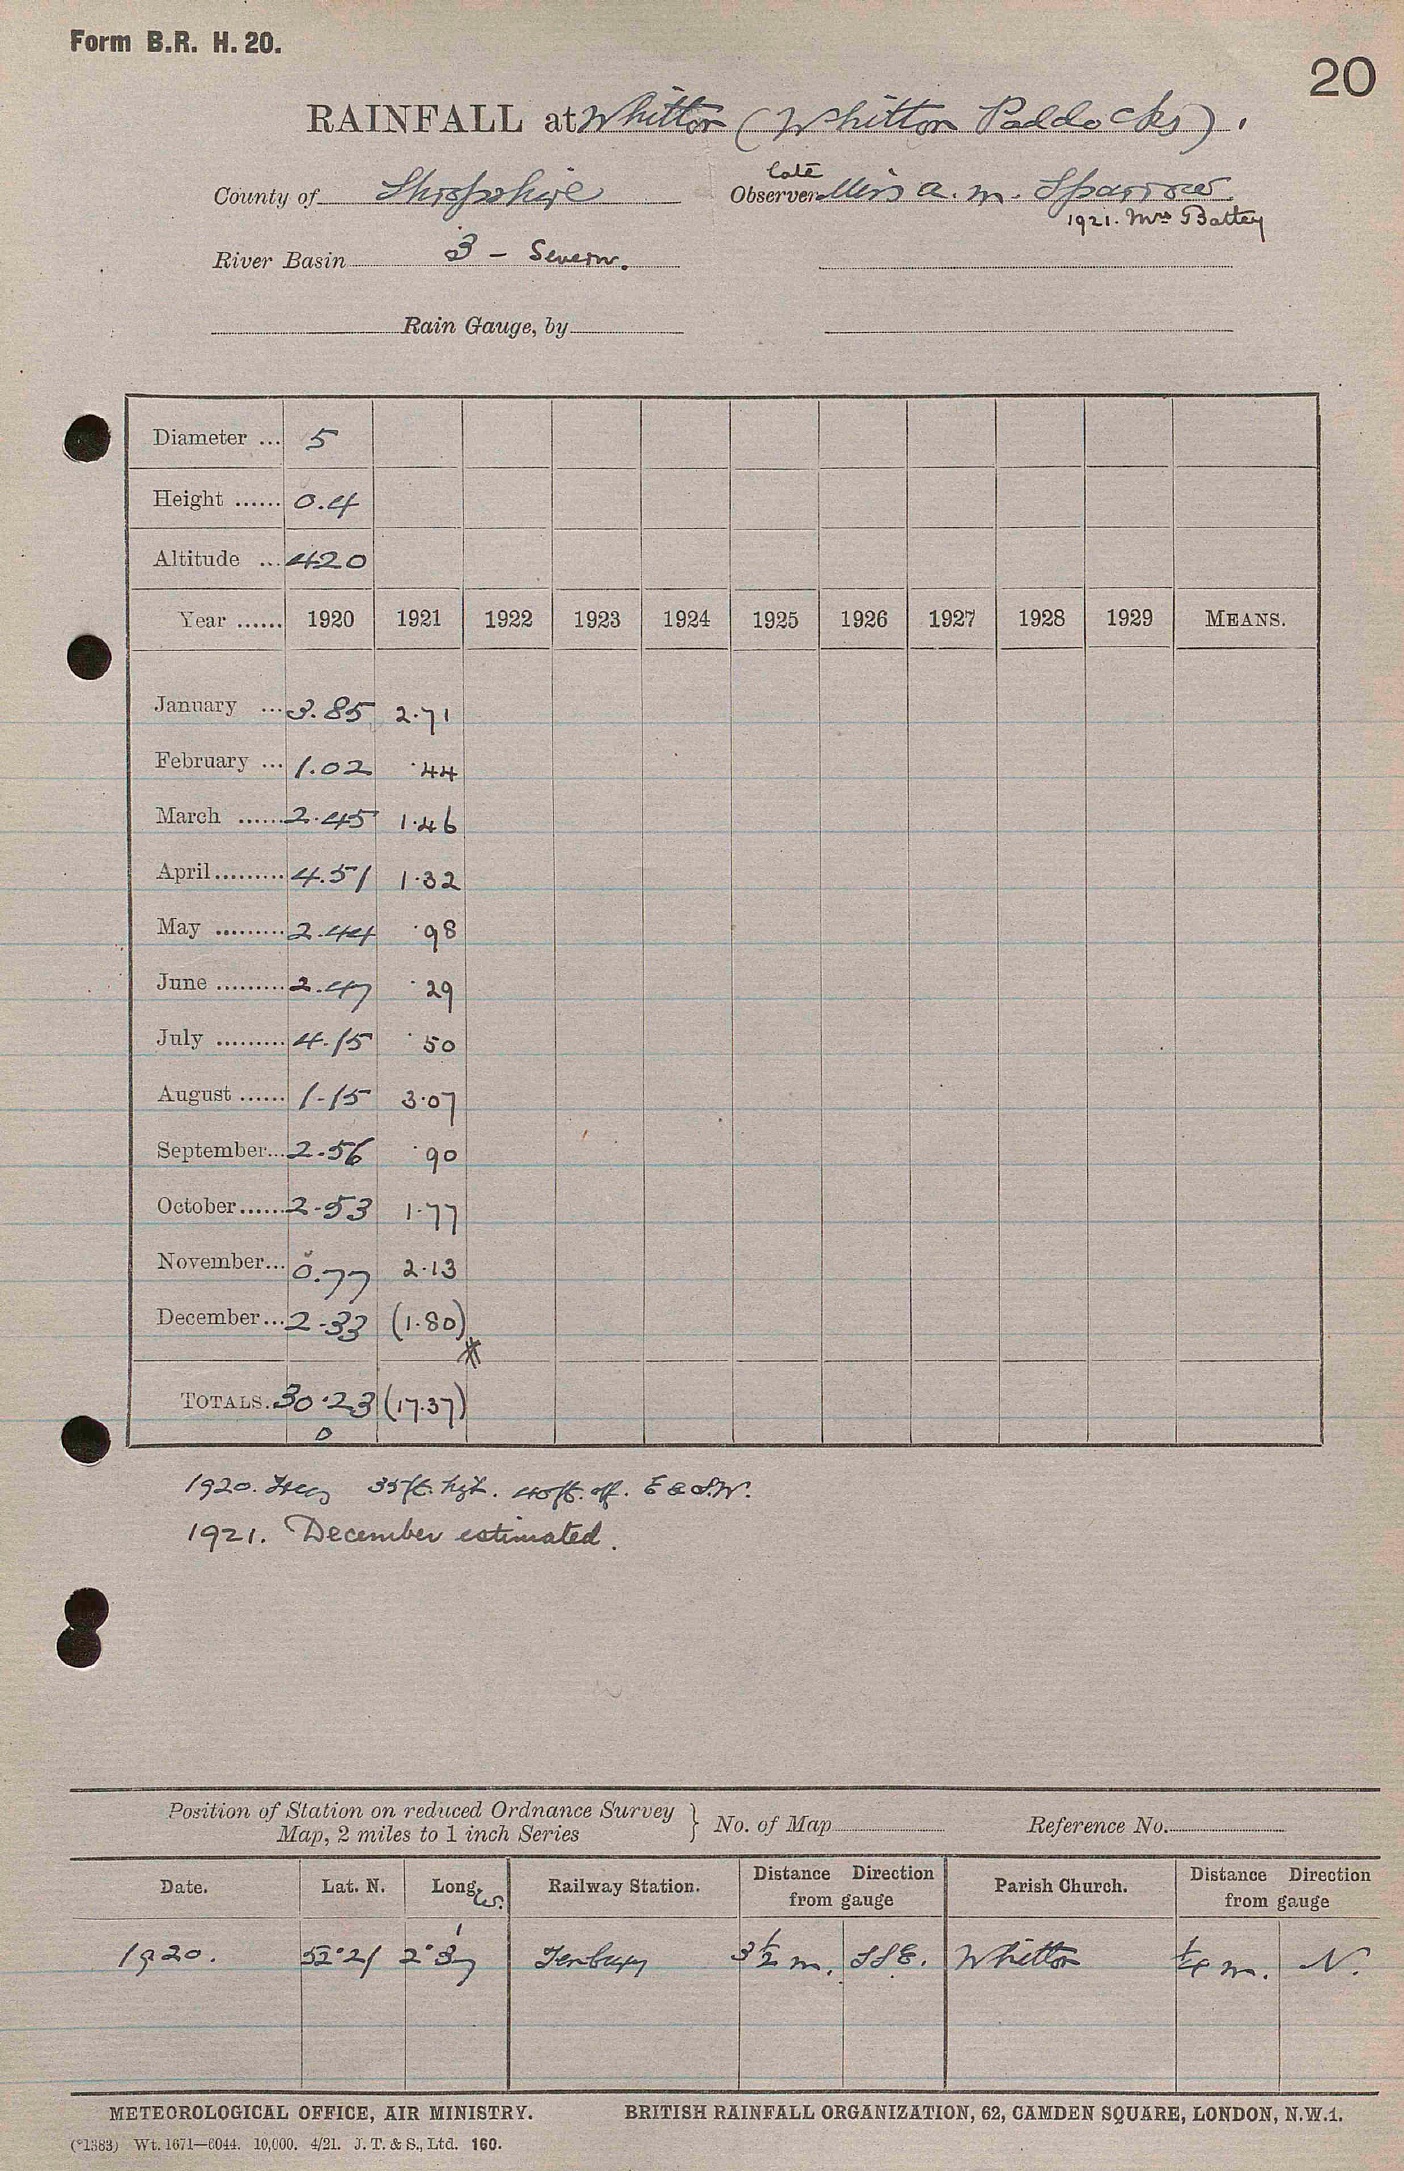 Form B.R. H. 20.
20
RAINFALL at Whitton (Whitton Paddocks).
County of Shropshire
late
Observer Miss A. M. Sparrow
1921. Mrs Battey
River Basin 3 - Severn.
Rain Gauge, by
Diameter ... 5
Height ...... 0.4
Altitude ... 420
Year ...... 1920 1921 1922 1923 1924 1925 1926 1927 1928 1929 MEANS.
January ... 3.85 2.71
February ... 1.02 .44
March ...... 2.45 1.46
April ......... 4.51 1.32
May ......... 2.44 .98
June ......... 2.47 .29
July ......... 4.15 .50
August ...... 1.15 3.07
September... 2.56 .90
October...... 2.53 1.77
November... 0.77 2.13
December... 2.33 (1.80)
*
TOTALS. 30.23 (17.37)
0
1920. Trees 35 ft. hgt. 40 ft. off. E & S.W.
1921. December estimated.
Position of Station on reduced Ordnance Survey
Map, 2 miles to 1 inch Series } No. of Map Reference No.
Date. Lat. N. Long. W. Railway Station. Distance Direction from gauge Parish Church. Distance Direction from gauge
1920. 52°21 2°37' Tenbury 3½ m. SSE. Whitton ¼ m. N.
METEOROLOGICAL OFFICE, AIR MINISTRY. BRITISH RAINFALL ORGANIZATION, 62, CAMDEN SQUARE, LONDON, N.W.1.
(*1383) Wt. 1671—6044. 10,000. 4/21. J. T. & S., Ltd. 160.